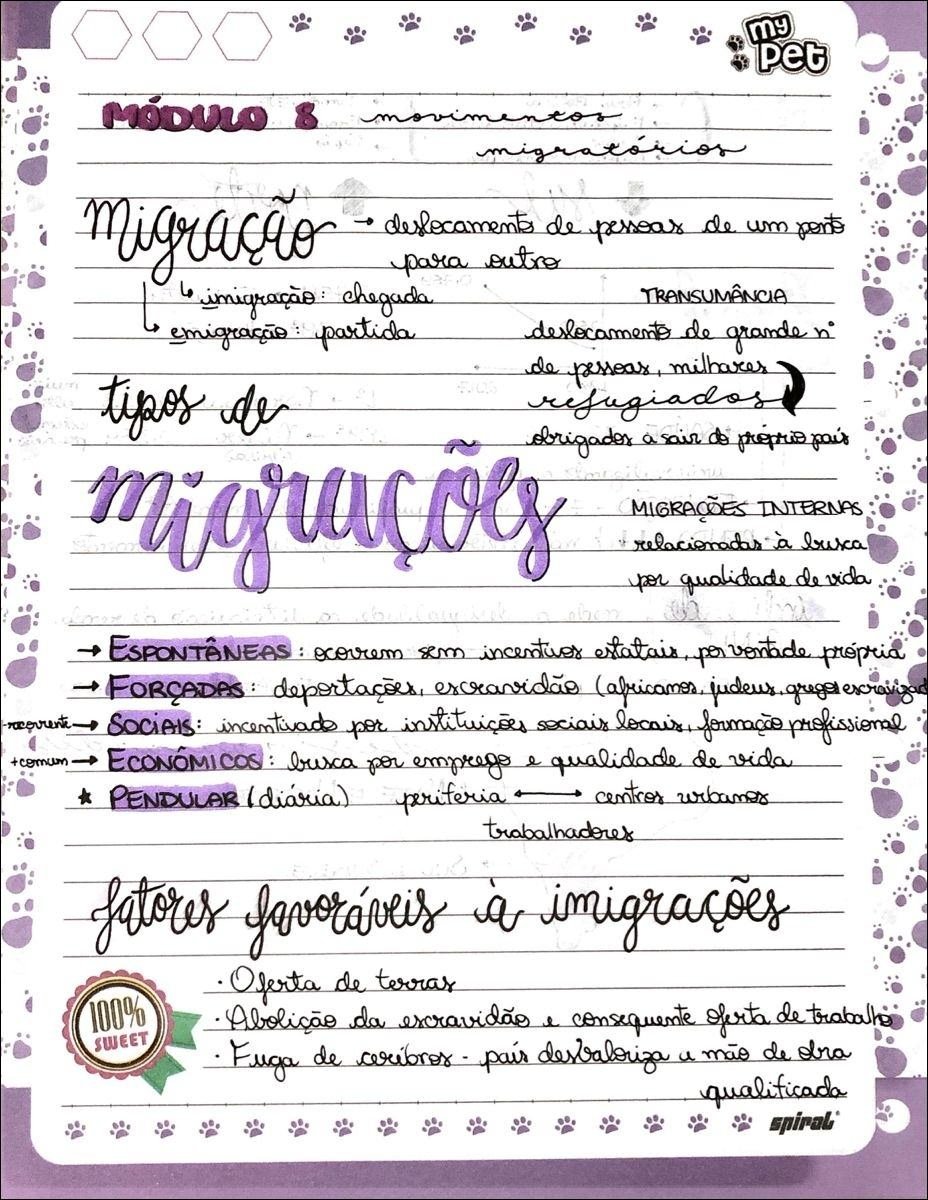 my pet
MÓDULO 8 movimentos
migratórios
Migração → deslocamento de pessoas de um ponto
para outro
↳ imigração: chegada
↳ emigração: partida
TRANSUMÂNCIA
deslocamento de grande nº
de pessoas, milhares
refugiados
obrigados a sair do próprio país
tipos de
migrações
MIGRAÇÕES INTERNAS
relacionadas à busca
por qualidade de vida
→ ESPONTÂNEAS: ocorrem sem incentivos estatais, por vontade própria
→ FORÇADAS: deportações, escravidão (africanos, judeus, gregos
-recorrente → SOCIAIS: incentivado por instituições sociais locais, formação profissional
+comum → ECONÔMICOS: busca por emprego e qualidade de vida
★ PENDULAR (diária) periferia ↔ centros urbanos
trabalhadores
fatores favoráveis à imigrações
· Oferta de terras
· Abolição da escravidão e consequente oferta de trabalho
· Fuga de cerébros - país desvaloriza a mão de obra
qualificada
100%
SWEET
spiral